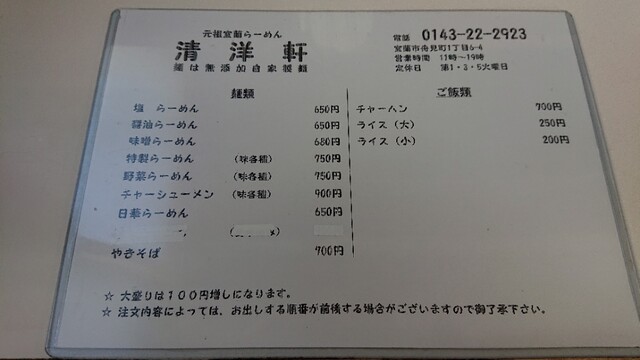 元祖室蘭らーめん
清洋軒
麺は無添加自家製麺
電話 0143-22-2923
室蘭市舟見町1丁目6-4
営業時間 11時～19時
定休日 第1・3・5火曜日
麺類
塩 らーめん 650円
醤油らーめん 650円
味噌らーめん 680円
特製らーめん (味各種) 750円
野菜らーめん (味各種) 750円
チャーシューメン (味各種) 900円
日華らーめん 650円
やきそば 700円
ご飯類
チャーハン 700円
ライス (大) 250円
ライス (小) 200円
☆ 大盛りは100円増しになります。
☆ 注文内容によっては、お出しする順番が前後する場合がございますので御了承下さい。